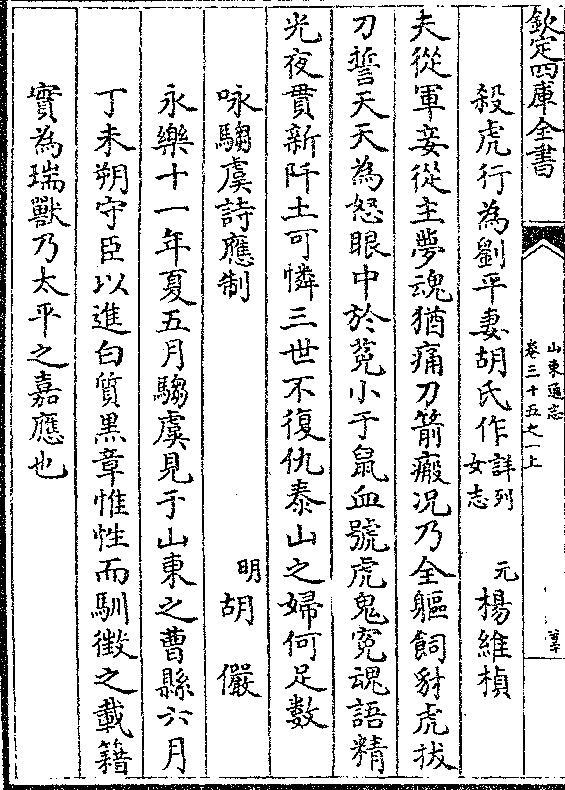 欽定四庫全書
山東通志
卷三十五之一上
殺虎行為劉平妻胡氏作詳列女志　元楊維楨
夫從軍妾從主夢魂猶痛刀箭瘢况乃全軀飼豺虎拔
刀誓天天為怒眼中於菟小于䑕血號虎鬼寃魂語精
光夜貫新阡土可憐三世不復仇泰山之婦何足數
咏騶虞詩應制　明胡儼
永樂十一年夏五月騶虞見于山東之曹縣六月
丁未朔守臣以進白質黒章惟性而馴徴之載籍
實為瑞獸乃太平之嘉應也